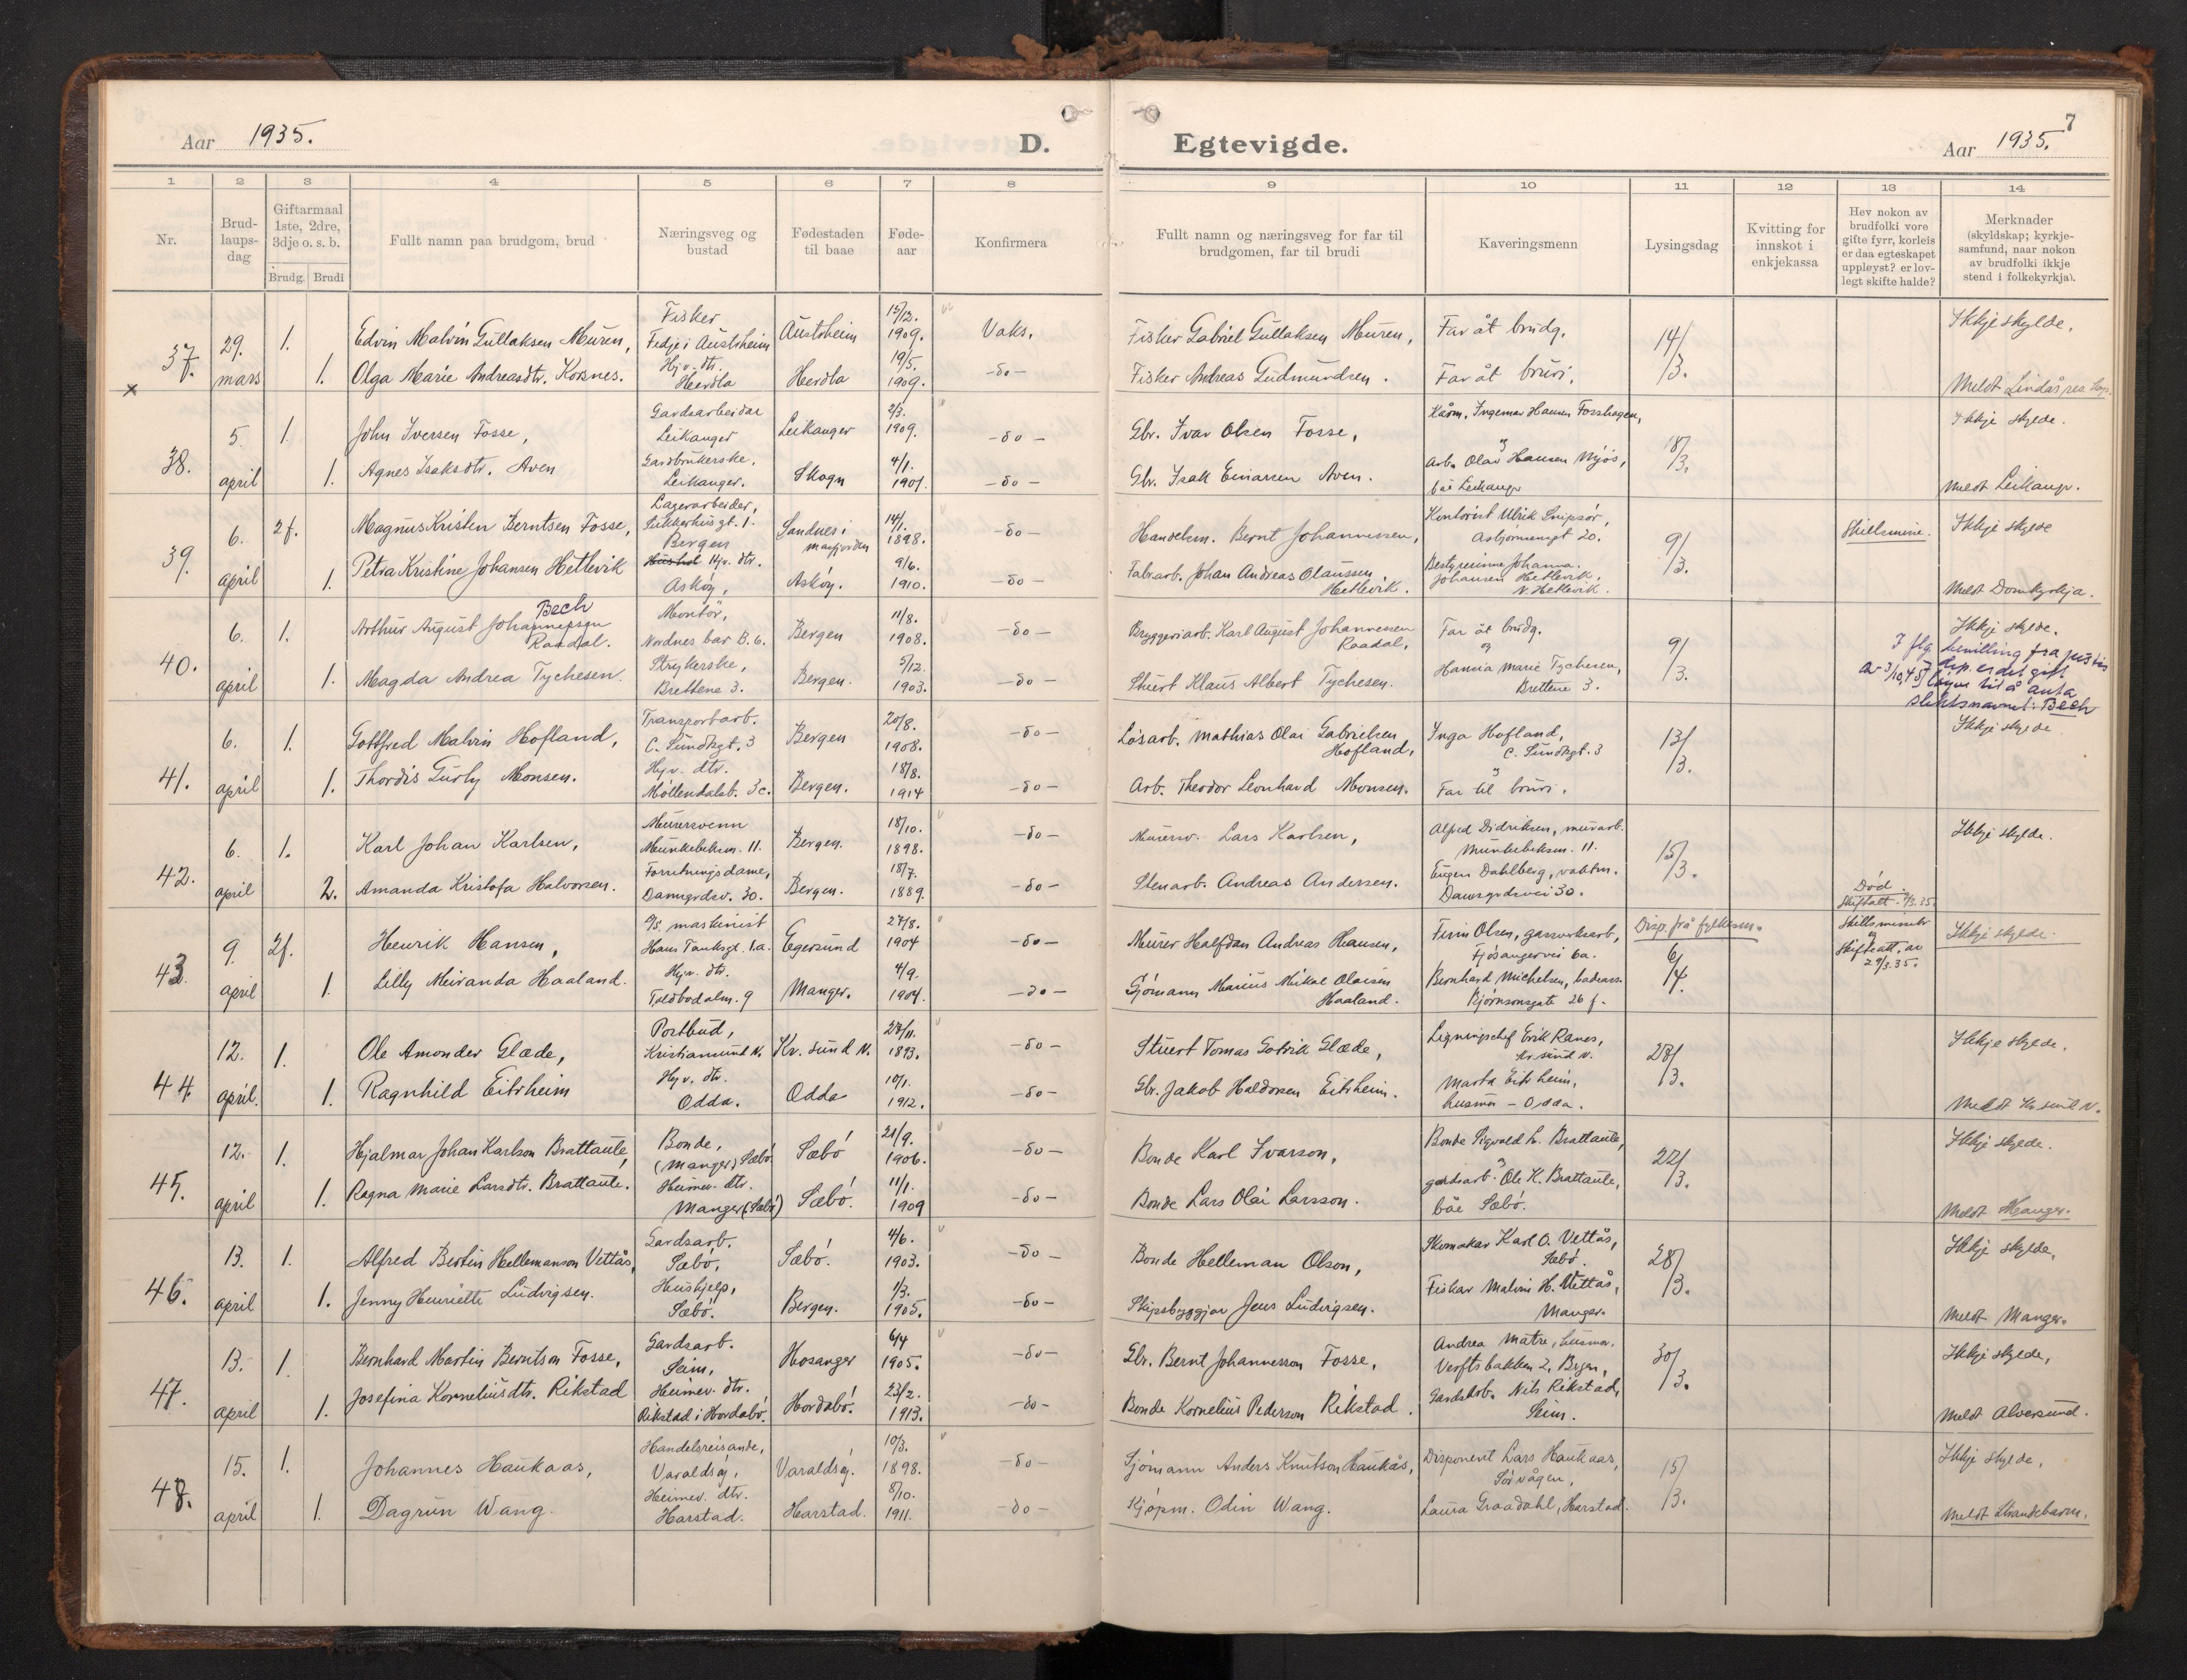 Aar 1935. D. Egtevigde. Aar 1935. 7
1 2 3 4 5 6 7 8 9 10 11 12 13 14
Nr.
Brud-
laups-
dag
Giftarmaal
1ste, 2dre,
3dje o. s. b.
Brudg. Brudi
Fullt namn paa brudgom, brud
Næringsveg og
bustad
Fødestaden
til baae
Føde-
aar
Konfirmera
Fullt namn og næringsveg for far til
brudgomen, far til brudi
Kaveringsmenn
Lysingsdag
Kvitting for
innskot i
enkjekassa
Hev nokon av
brudfolki vore
gifte fyrr, korleis
er daa egteskapet
uppløyst? er lov-
legt skifte halde?
Merknader
(skyldskap; kyrkje-
samfund, naar nokon
av brudfolki ikkje
stend i folkekyrkja).
37. 29. mars
x
1. Edvin Malvin Gullaksen Muren, Fisker Fedje i Austrheim Austrheim 15/12. 1909. Vaks. Fisker Gabriel Gullaksen Muren, Far åt brudg. 14/3. Ikkje skylde,
1. Olga Marie Andreasdtr. Korsnes. Hjv. dtr. Herdla Herdla 19/5. 1909. -do- Fisker Andreas Gudmundsen. Far åt bruri. Meldt Lindås
38. 5. april
1. John Iversen Fosse, Gardsarbeidar Leikanger Leikanger 2/3. 1909. -do- Gbr. Ivar Olsen Fosse, Ingemar Hansen Forshagen, og 18/3. Ikkje skylde.
1. Agnes Isaksdtr. Aven Gardbrukerske, Leikanger. Skogn 4/1. 1901. -do- Gbr. Isak Einarsen Aven. Arb. Olav Hansen Mjøs, båe Leikanger Meldt Leikangr.
39. 6. april
2f. Magnus Kristen Berntsen Fosse, Lagerarbeider, Sukkerhusgt. 1. Bergen Sandnes i Masfjorden 14/1. 1898. -do- Handelsm. Bernt Johannessen, Kontorist Ulrik Snipsør, Asbjørnsensgt 20. 9/3. Skilsmisse. Ikkje skylde
1. Petra Kristine Johansen Hetlevik Hushol Hjv. dtr. Askøy, Askøy. 9/6. 1910. -do- Fabrarb. Johan Andreas Olaussen Hetlevik. Bestyrerinne Johanna Johansen Hetlevik, N. Hetlevik. Meldt Domkyrkja.
40. 6. april
1. Arthur August Johannessen Raadal. Bech Montør, Nordnes bar B. 6. Bergen 11/8. 1908. -do- Bryggeriarb. Karl August Johannessen Raadal, Far åt brudg. og 9/3. Ikkje skylde.
1. Magda Andrea Tychesen. Strykerske, Brettene 3. Bergen. 5/12. 1903. -do- Stuert Klaus Albert Tychesen. Hanna Marie Tychesen, Brettene 3.
I flg. bevilling fra justis
dep. er det gift
av 3/10, 45 løyve til å anta
slektsnavnet: Bech
41. 6. april
1. Gottfred Malvin Hofland, Transportarb. C. Sundtsgt. 3 Bergen 20/8. 1908. -do- Løsarb. Mathias Olai Gabrielsen Hofland, Inga Hofland, C. Sundtsgt. 3 og 13/3. Ikkje skylde
1. Thordis Gurly Monsen. Hjv. dtr. Møllendalsb. 3c. Bergen. 18/8. 1914 -do- Arb. Theodor Leonhard Monsen. Far til bruri.
42. 6. april
1. Karl Johan Karlsen, Murersvenn Munkebeksm. 11. Bergen. 18/10. 1898. -do- Murersv. Lars Karlsen, Alfred Didriksen, murarb. Munkebeksm. 11. 15/3. Ikkje skylde.
2. Amanda Kristofa Halvorsen. Forretningsdame, Damsgrdsv. 30. Bergen. 18/7. 1889. -do- Stenarb. Andreas Andersen. Eugen Dahlberg, vaktm. Damsgrdsvei 30. Død. Skifteatt. 9/3.35
43. 9. april
2f. Henrik Hansen, maskinist Hans Tanksgt. 1.a. Egersund 27/8. 1904 -do- Murer Halfdan Andreas Hansen, Finn Olsen, gassverksarb, Fjøsangervei 6a. Disp. frå fylkesm. 6/4. Skilsmisse og skifteatt. av 29/3.35. Ikkje skylde.
1. Lilly Meiranda Haaland. Hjv. dtr. Tollbodalm. 9 Manger. 4/9. 1904. -do- Sjømann Marius Mikal Olaisen Haaland. Bernhard Michelsen, Bjørnsonsgate 26 f.
44. 12. april.
1. Ole Amonder Glæde, Postbud, Kristiansund N. Kr. sund N. 28/11. 1893. -do- Stuert Tomas Gotvik Glæde, Ligningschef Erik Ranes, Kr sund N. 28/3. Ikkje skylde.
1. Ragnhild Eitrheim Hjv. dtr. Odda. Odda 10/1. 1912. -do- Gbr. Jakob Haldorsen Eitrheim. Marta Eitrheim, husmor - Odda. Meldt Kr sund N.
45. 12. april
1. Hjalmar Johan Karlson Brattaule, Bonde, (Manger) Sæbø Sæbø 21/9. 1906. -do- Bonde Karl Ivarson, Bonde Sigvald L. Brattaule, og 22/3. Ikkje skylde.
1. Ragna Marie Larsdtr. Brattaule. Heimev. dtr. Manger (Sæbø) Sæbø. 11/1. 1909 -do- Bonde Lars Olai Larsson. gardsarb. Ole K. Brattaule, båe Sæbø. Meldt Manger.
46. 13. april
1. Alfred Bertin Hellemanson Vettås, Gardsarb. Sæbø, Sæbø. 4/6. 1903. -do- Bonde Helleman Olson, Skomakar Karl O. Vettås, Sæbø. 28/3. Ikkje skylde,
1. Jenny Henriette Ludvigsen. Hushjelp, Sæbø. Bergen. 1/3. 1905. -do- Skipsbyggjar Jens Ludvigsen. Fiskar Malvin H. Vettås, Manger. Meldt Manger.
47. 13. april
1. Bernhard Martin Berntson Fosse, Gardsarb. Seim, Hosanger 6/4 1905. -do- Gbr. Bernt Johannesson Fosse, Andrea Matre, husmor. Verftsbakken 2, Brgen, 30/3. Ikkje skylde,
1. Josefina Korneliusdtr. Rikstad Heimev. dtr. Rikstad i Hordabø. Hordabø. 23/2. 1913. -do- Bonde Kornelius Pederson Rikstad. Gardsarb. Nils Rikstad, Seim. Meldt Alversund.
48. 15. april
1. Johannes Haukaas, Handelsreisande, Varaldsøy, Varaldsøy. 10/3. 1898. -do- Sjømann Anders Knutson Haukås, Disponent Lars Haukaas, Sørvågen, 15/3. Ikkje skylde,
1. Dagrun Wang. Heimev. dtr. Harstad. Harstad. 8/10. 1911. -do- Kjøpm. Odin Wang. Laura Graadahl, Harstad. Meldt Strandebarm.